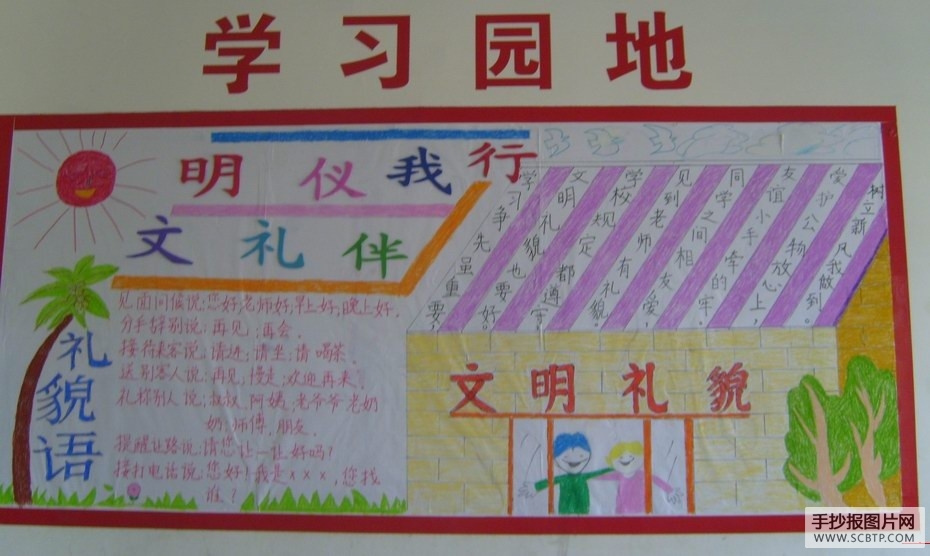 学习园地
文明礼仪伴我行
礼貌语
见面问候说:您好;老师好;早上好;晚上好.
分手辞别说:再见;再会.
接待来客说:请进;请坐;请喝茶.
送别客人说:再见;慢走;欢迎再来.
礼称别人说:叔叔、阿姨、老爷爷、老奶
奶;师傅、朋友.
提醒让路说:请您让一让好吗?
接打电话说:您好!我是xxx,您找
谁?
学习争先虽重要,
文明礼貌也要好。
学校规定都遵守,
见到老师有礼貌。
同学之间相友爱,
友谊小手牵的牢。
爱护公物放心上,
树立新风我做到。
文明礼貌
手抄报图片网
WWW.SCBTP.COM